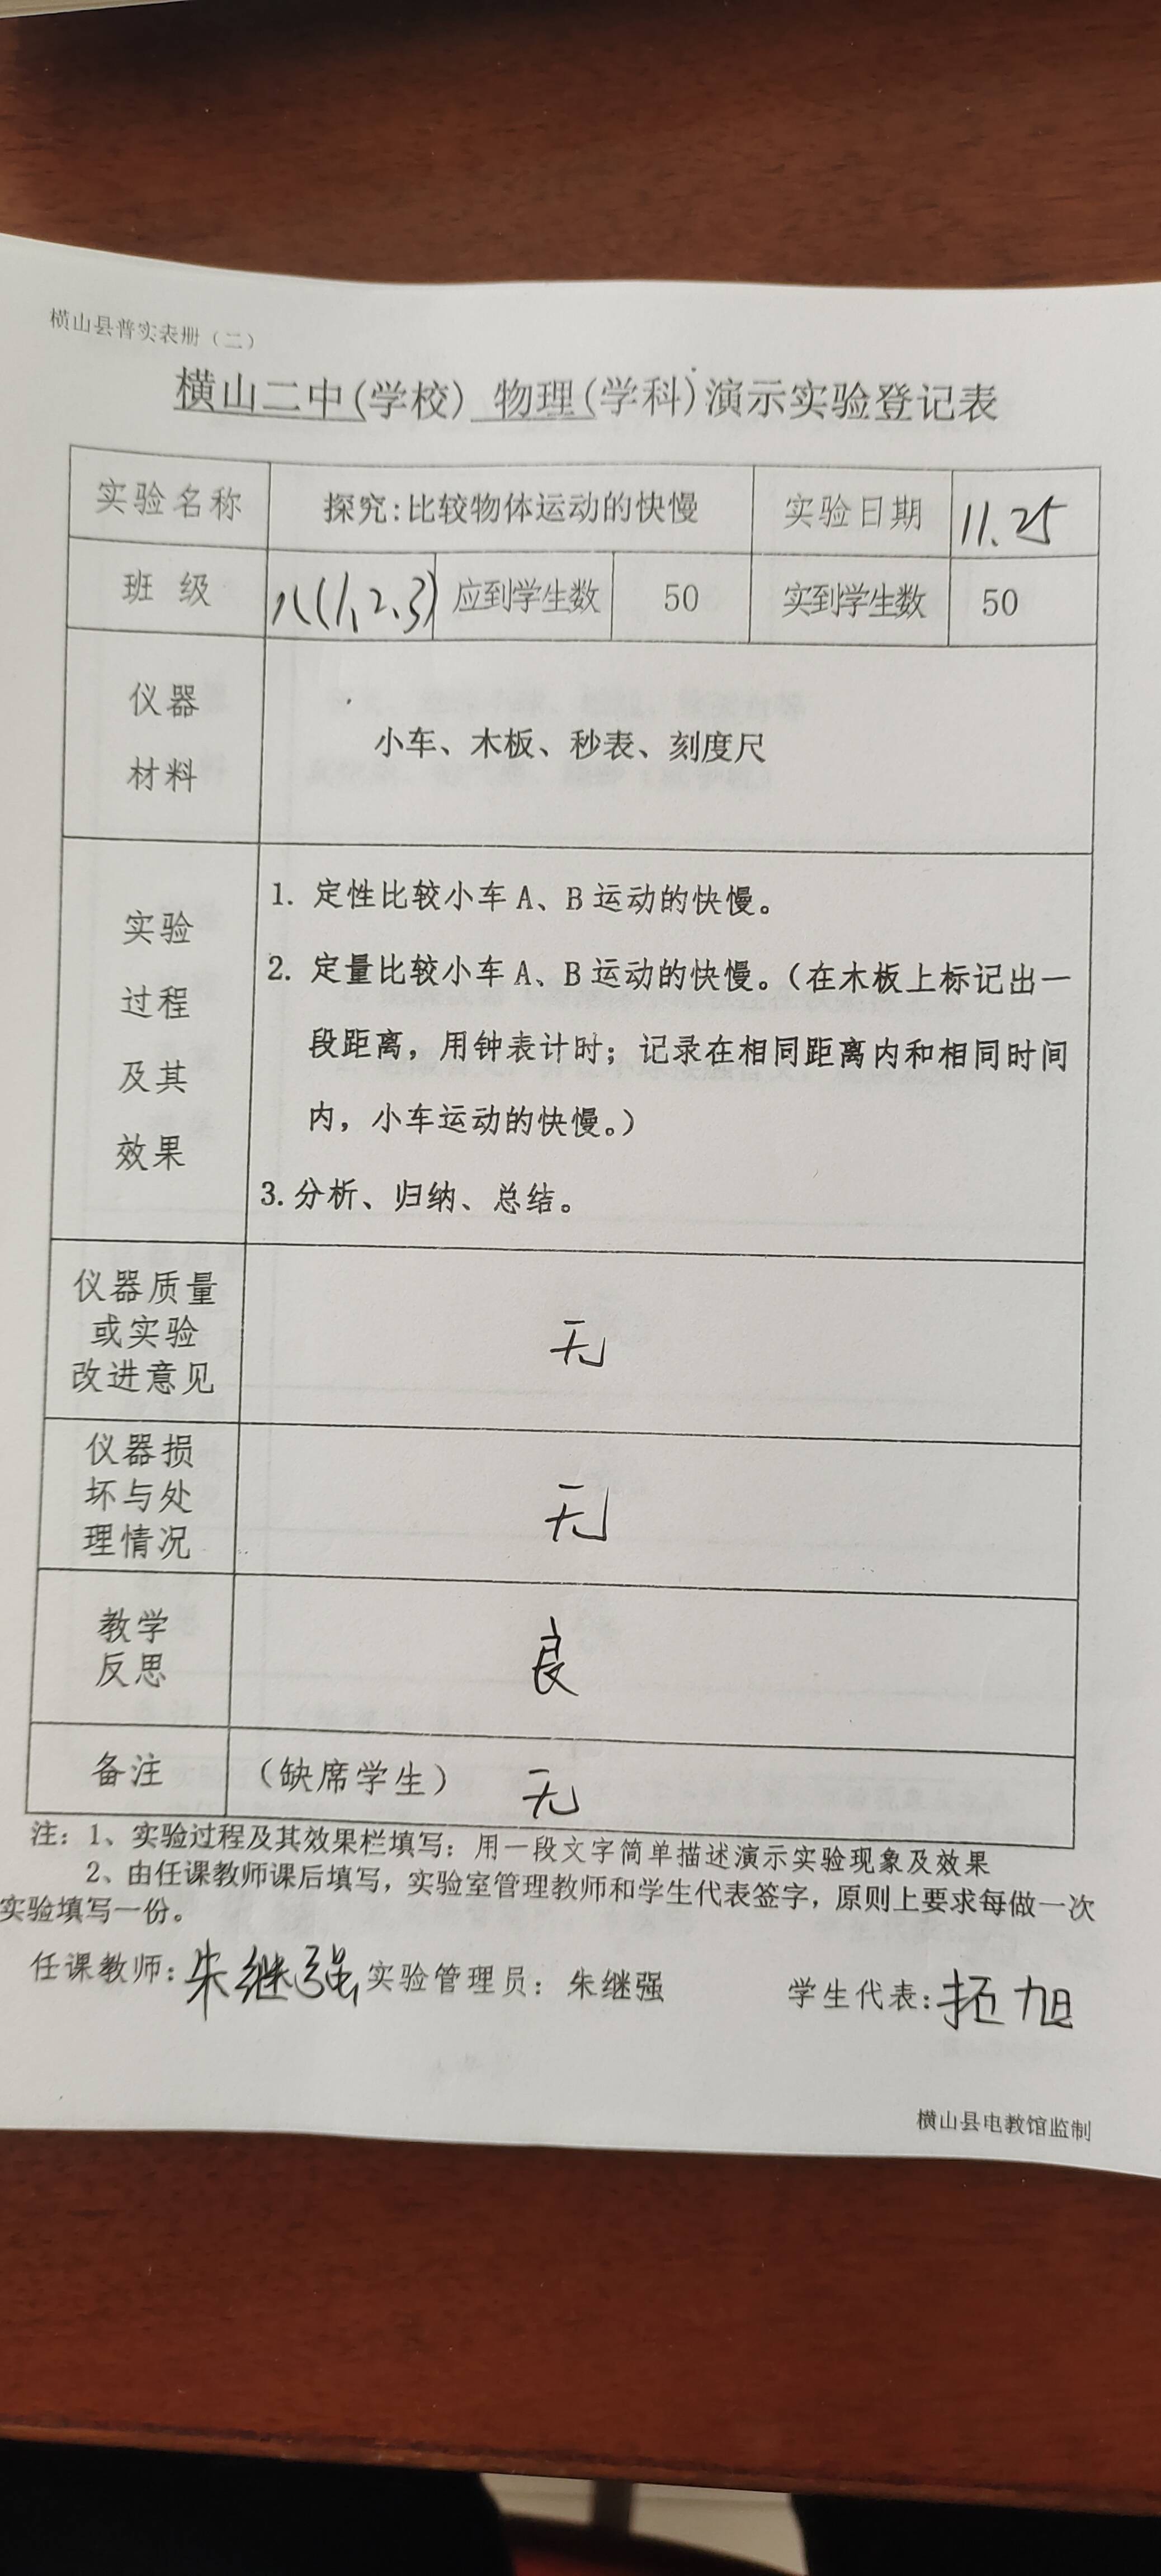 横山县普实表册（二）
横山二中(学校) 物理(学科)演示实验登记表
实验名称 探究:比较物体运动的快慢 实验日期 11.25
班 级 八(1、2、3) 应到学生数 50 实到学生数 50
仪器
材料
小车、木板、秒表、刻度尺
实验
过程
及其
效果
1. 定性比较小车 A、B 运动的快慢。
2. 定量比较小车 A、B 运动的快慢。（在木板上标记出一
段距离，用钟表计时；记录在相同距离内和相同时间
内，小车运动的快慢。）
3.分析、归纳、总结。
仪器质量
或实验
改进意见
无
仪器损
坏与处
理情况
无
教学
反思
良
备注 （缺席学生） 无
注：1、实验过程及其效果栏填写：用一段文字简单描述演示实验现象及效果
2、由任课教师课后填写，实验室管理教师和学生代表签字，原则上要求每做一次
实验填写一份。
任课教师：朱继强 实验管理员：朱继强 学生代表：拓旭
横山县电教馆监制